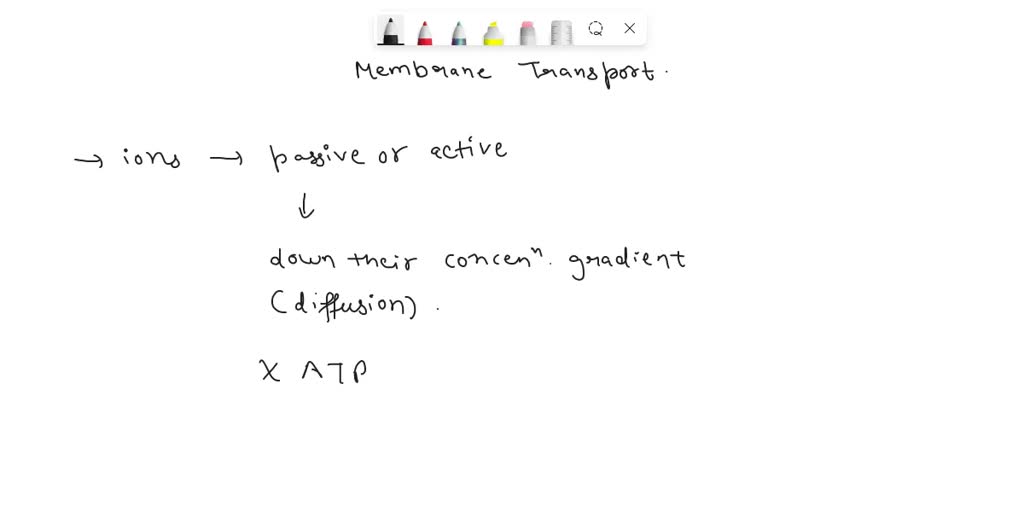 Membrane Transport.
→ ions → passive or active
↓
down their concenⁿ. gradient
(diffusion).
X ATP